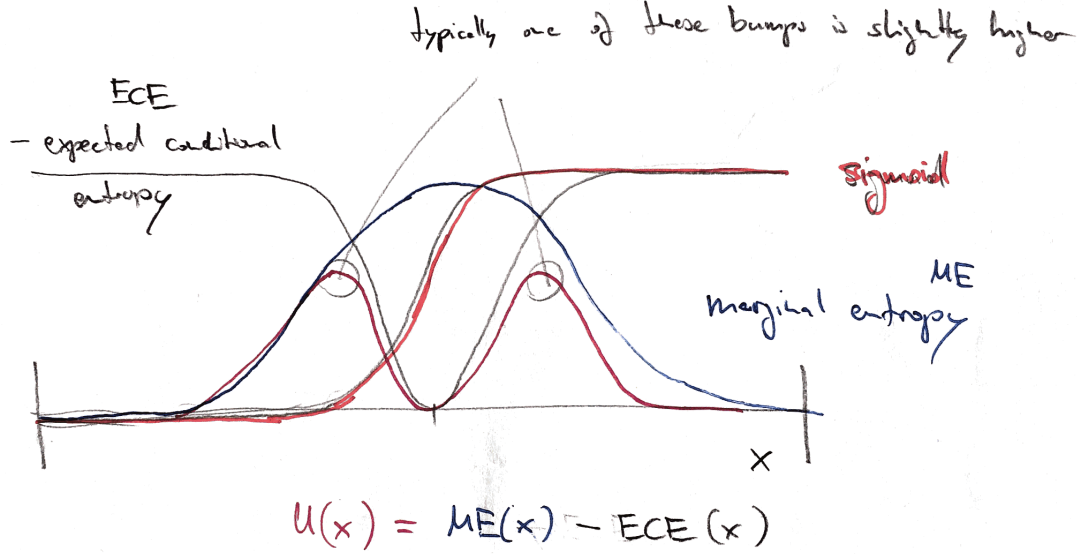 typically one of these bumps is slightly higher
ECE
- expected conditional
entropy
sigmoid
ME
marginal entropy
x
U(x) = ME(x) - ECE(x)